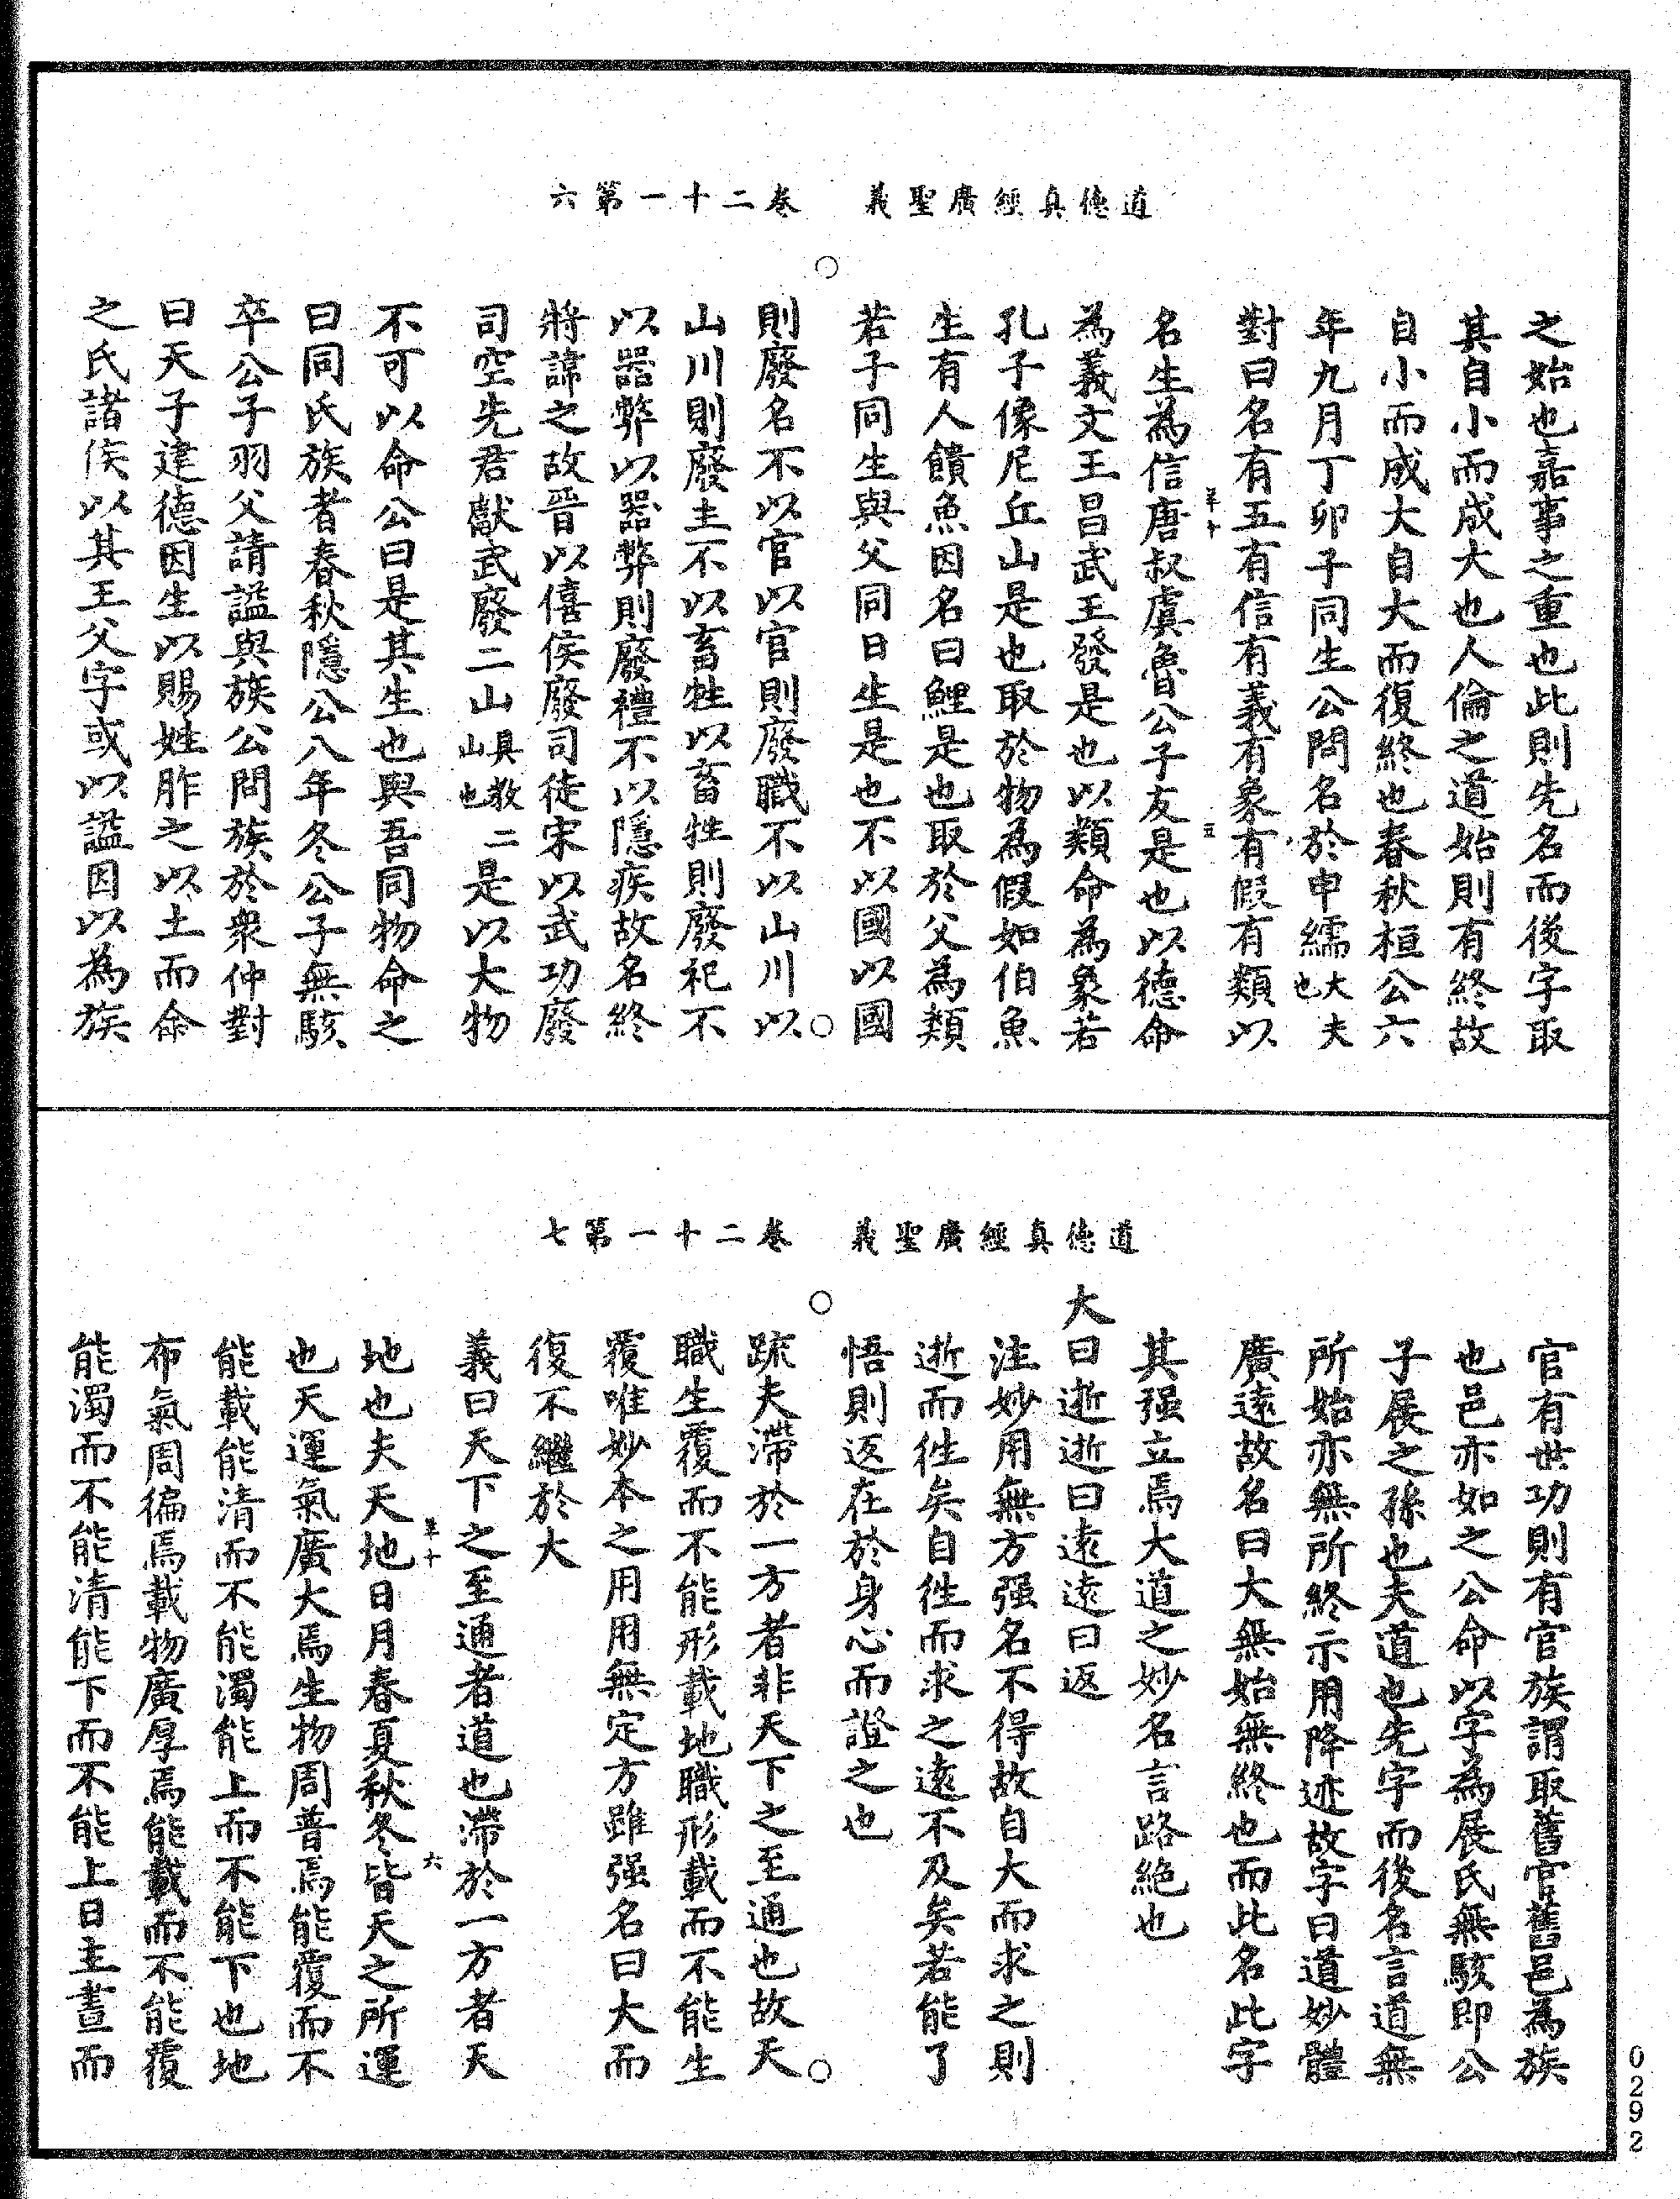 道德真經廣聖義　卷二十一第六
之始也嘉事之重也此則先名而後字取
其自小而成大也人倫之道始則有終故
自小而成大自大而復終也春秋桓公六
年九月丁卯子同生公問名於申繻大夫也
對曰名有五有信有義有象有假有類以
名生為信唐叔虞魯公子友是也以德命
為義文王昌武王發是也以類命為象若
孔子像尼丘山是也取於物為假如伯魚
生有人饋魚因名曰鯉是也取於父為類
若子同生與父同日生是也不以國以國
則廢名不以官以官則廢職不以山川以
山川則廢主不以畜牲以畜牲則廢祀不
以器幣以器幣則廢禮不以隱疾故名終
將諱之故晉以僖侯廢司徒宋以武功廢
司空先君獻武廢二山具敖二山也是以大物
不可以命公曰是其生也與吾同物命之
曰同氏族者春秋隱公八年冬公子無駭
卒公子羽父請謚與族公問族於衆仲對
曰天子建德因生以賜姓胙之以土而命
之氏諸侯以其王父字或以謚因以為族
道德真經廣聖義　卷二十一第七
官有世功則有官族謂取舊官舊邑為族
也邑亦如之公命以字為展氏無駭即公
子展之孫也夫道也先字而後名言道無
所始亦無所終示用降迹故字曰道妙體
廣遠故名曰大無始無終也而此名此字
其强立焉大道之妙名言路絶也
大曰逝逝曰遠遠曰返
注妙用無方强名不得故自大而求之則
逝而徃矣自徃而求之遠不及矣若能了
悟則返在於身心而證之也
疏夫滯於一方者非天下之至通也故天
職生覆而不能形載地職形載而不能生
覆唯妙本之用用無定方雖强名曰大而
復不繼於大
義曰天下之至通者道也滯於一方者天
地也夫天地日月春夏秋冬皆天之所運
也天運氣廣大焉生物周普焉能覆而不
能載能清而不能濁能上而不能下也地
布氣周徧焉載物廣厚焉能載而不能覆
能濁而不能清能下而不能上日主晝而
0292